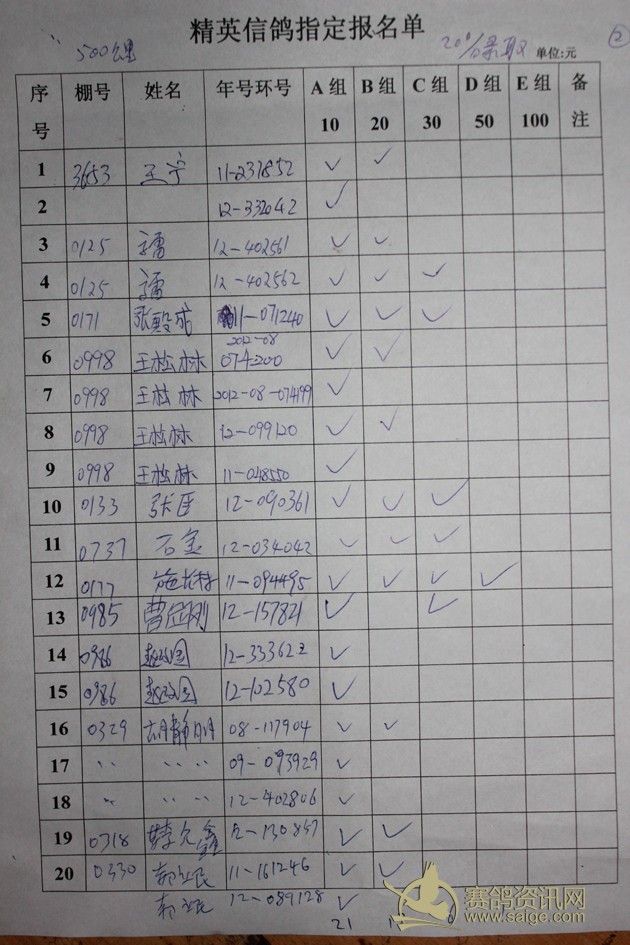 精英信鸽指定报名单
500公里 20%录取 单位:元 ②
序号 棚号 姓名 年号环号 A组 10 B组 20 C组 30 D组 50 E组 100 备注
1 3653 王宁 11-231852 ✓ ✓
2 12-332042 ✓
3 0125 12-402561 ✓ ✓
4 0125 12-402562 ✓ ✓ ✓
5 0171 张殿成 11-071240 ✓ ✓ ✓
6 0998 王松林 2012-08 074200 ✓ ✓
7 0998 王松林 2012-08-074199 ✓
8 0998 王松林 12-099120 ✓ ✓
9 0998 王松林 11-048550 ✓
10 0133 张臣 12-090361 ✓ ✓ ✓
11 0737 石金 12-034042 ✓ ✓ ✓
12 0177 11-094495 ✓ ✓ ✓ ✓
13 0985 12-157821 ✓ ✓
14 0986 赵改国 12-333622 ✓
15 0986 赵改国 12-102580 ✓
16 0329 胡静明 08-117904 ✓ ✓
17 〃 〃 09-093929 ✓
18 〃 〃 12-402806 ✓
19 0718 12-130857 ✓ ✓
20 0330 郭立民 11-161246 ✓ ✓
郭立民 12-089128 ✓
21
赛鸽资讯网
www.saige.com